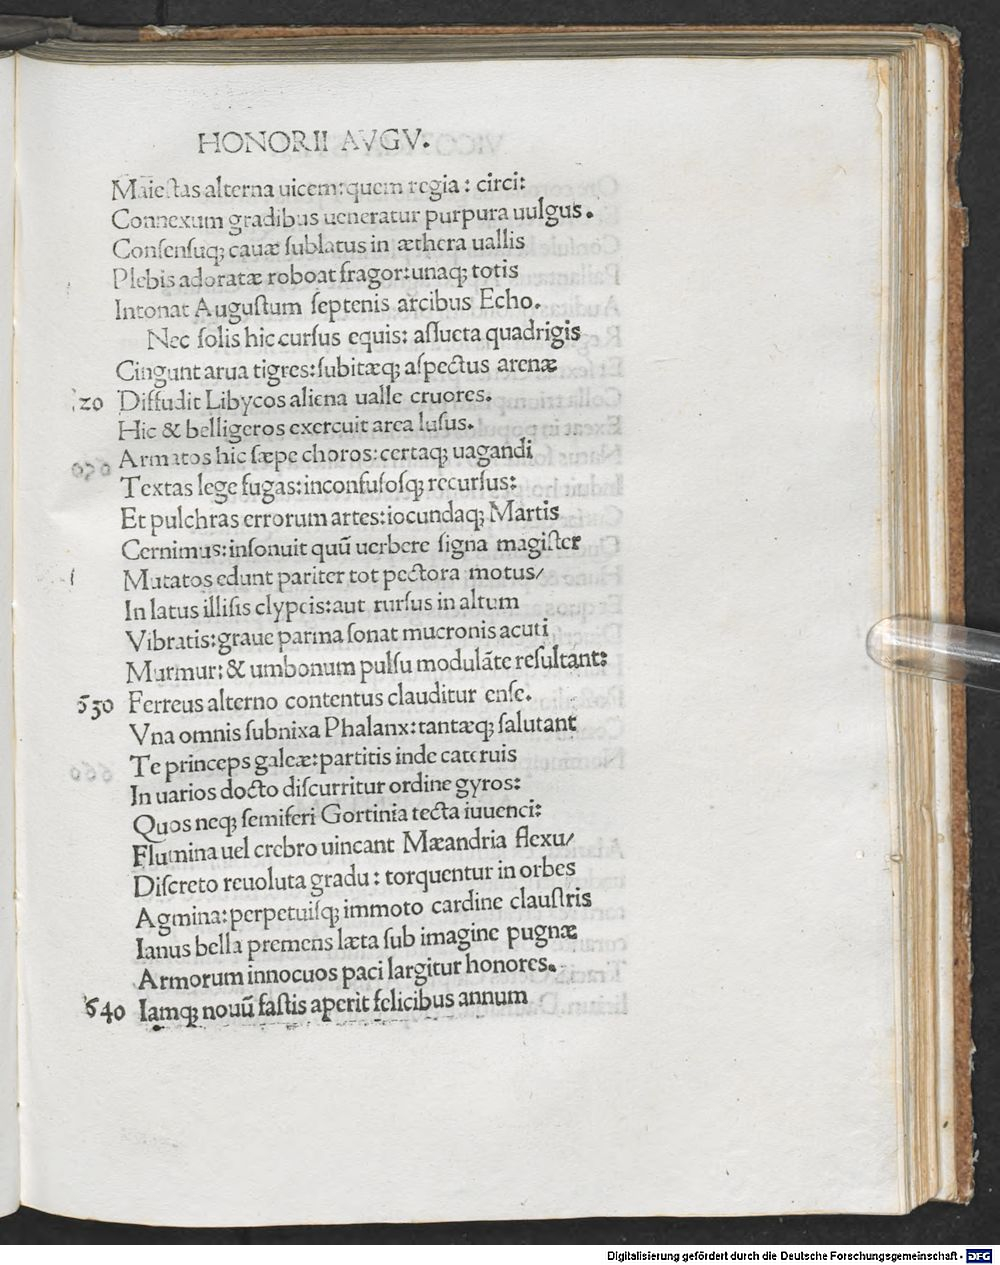 HONORII AVGV.
Maiestas alterna uicem: quem regia: circi:
Connexum gradibus ueneratur purpura uulgus.
Consensuq; cauæ sublatus in æthera uallis
Plebis adoratæ roboat fragor: unaq; totis
Intonat Augustum septenis arcibus Echo.
Nec solis hic cursus equis: assueta quadrigis
Cingunt arua tigres: subitæq; aspectus arenæ
20 Diffudit Libycos aliena ualle cruores.
Hic & belligeros exercuit area lusus.
Armatos hic sæpe choros: certaq; uagandi
Textas lege fugas: inconfusosq; recursus:
Et pulchras errorum artes: iocundaq; Martis
Cernimus: insonuit quū uerbere signa magister
Mutatos edunt pariter tot pectora motus/
In latus illisis clypeis: aut rursus in altum
Vibratis: graue parma sonat mucronis acuti
Murmur: & umbonum pulsu modulāte resultant:
630 Ferreus alterno contentus clauditur ense.
Vna omnis subnixa Phalanx: tantæq; salutant
Te princeps galeæ: partitis inde cateruis
In uarios docto discurritur ordine gyros:
Quos neq; semiferi Gortinia tecta iuuenci:
Flumina uel crebro uincant Mæandria flexu/
Discreto reuoluta gradu: torquentur in orbes
Agmina: perpetuisq; immoto cardine claustris
Ianus bella premens læta sub imagine pugnæ
Armorum innocuos paci largitur honores.
640 Iamq; nouū fastis aperit felicibus annum
Digitalisierung gefördert durch die Deutsche Forschungsgemeinschaft - DFG